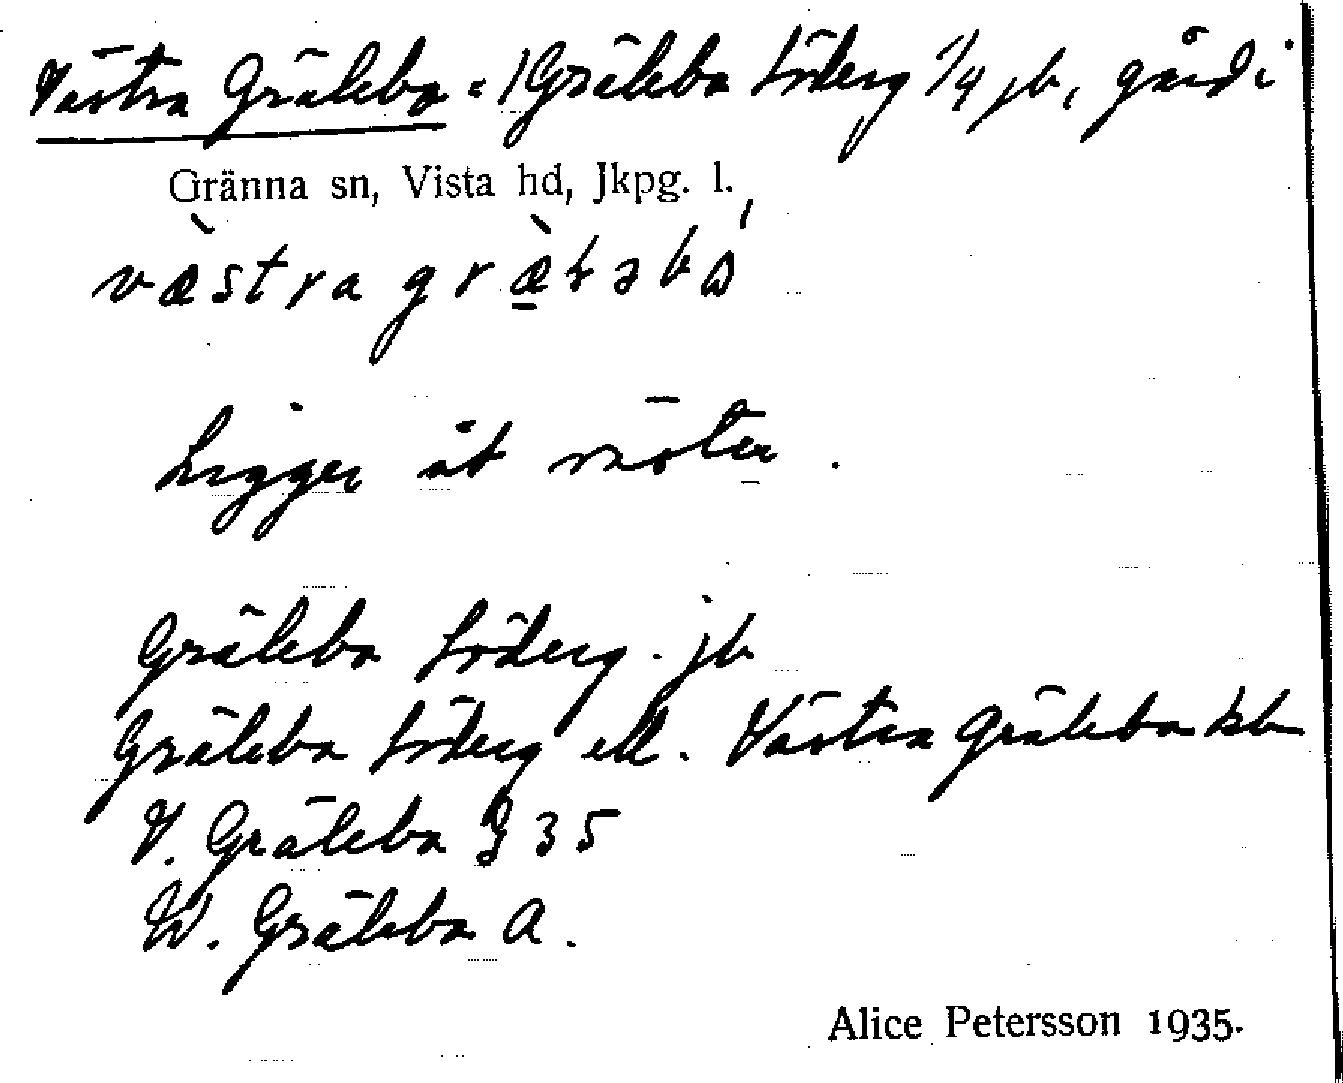 Västra Gräleba = Gräleba Söderg 1/4 jb, gård i
Gränna sn, Vista hd, Jkpg. l.
væ̀stra græ̀ləbа́
Ligger åt väster.
Gräleba Söderg. jb
Gräleba Söderg ell. Västra Gräleba kb
V. Gräleba J 35
W. Gräleba A.
Alice Petersson 1935.